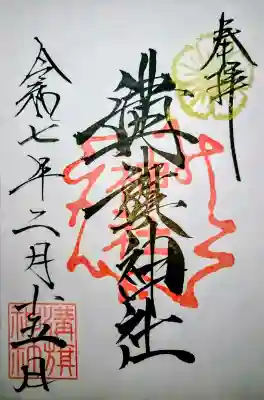 奉拝
溝旗神社
令和七年二月十五日
溝旗
神社